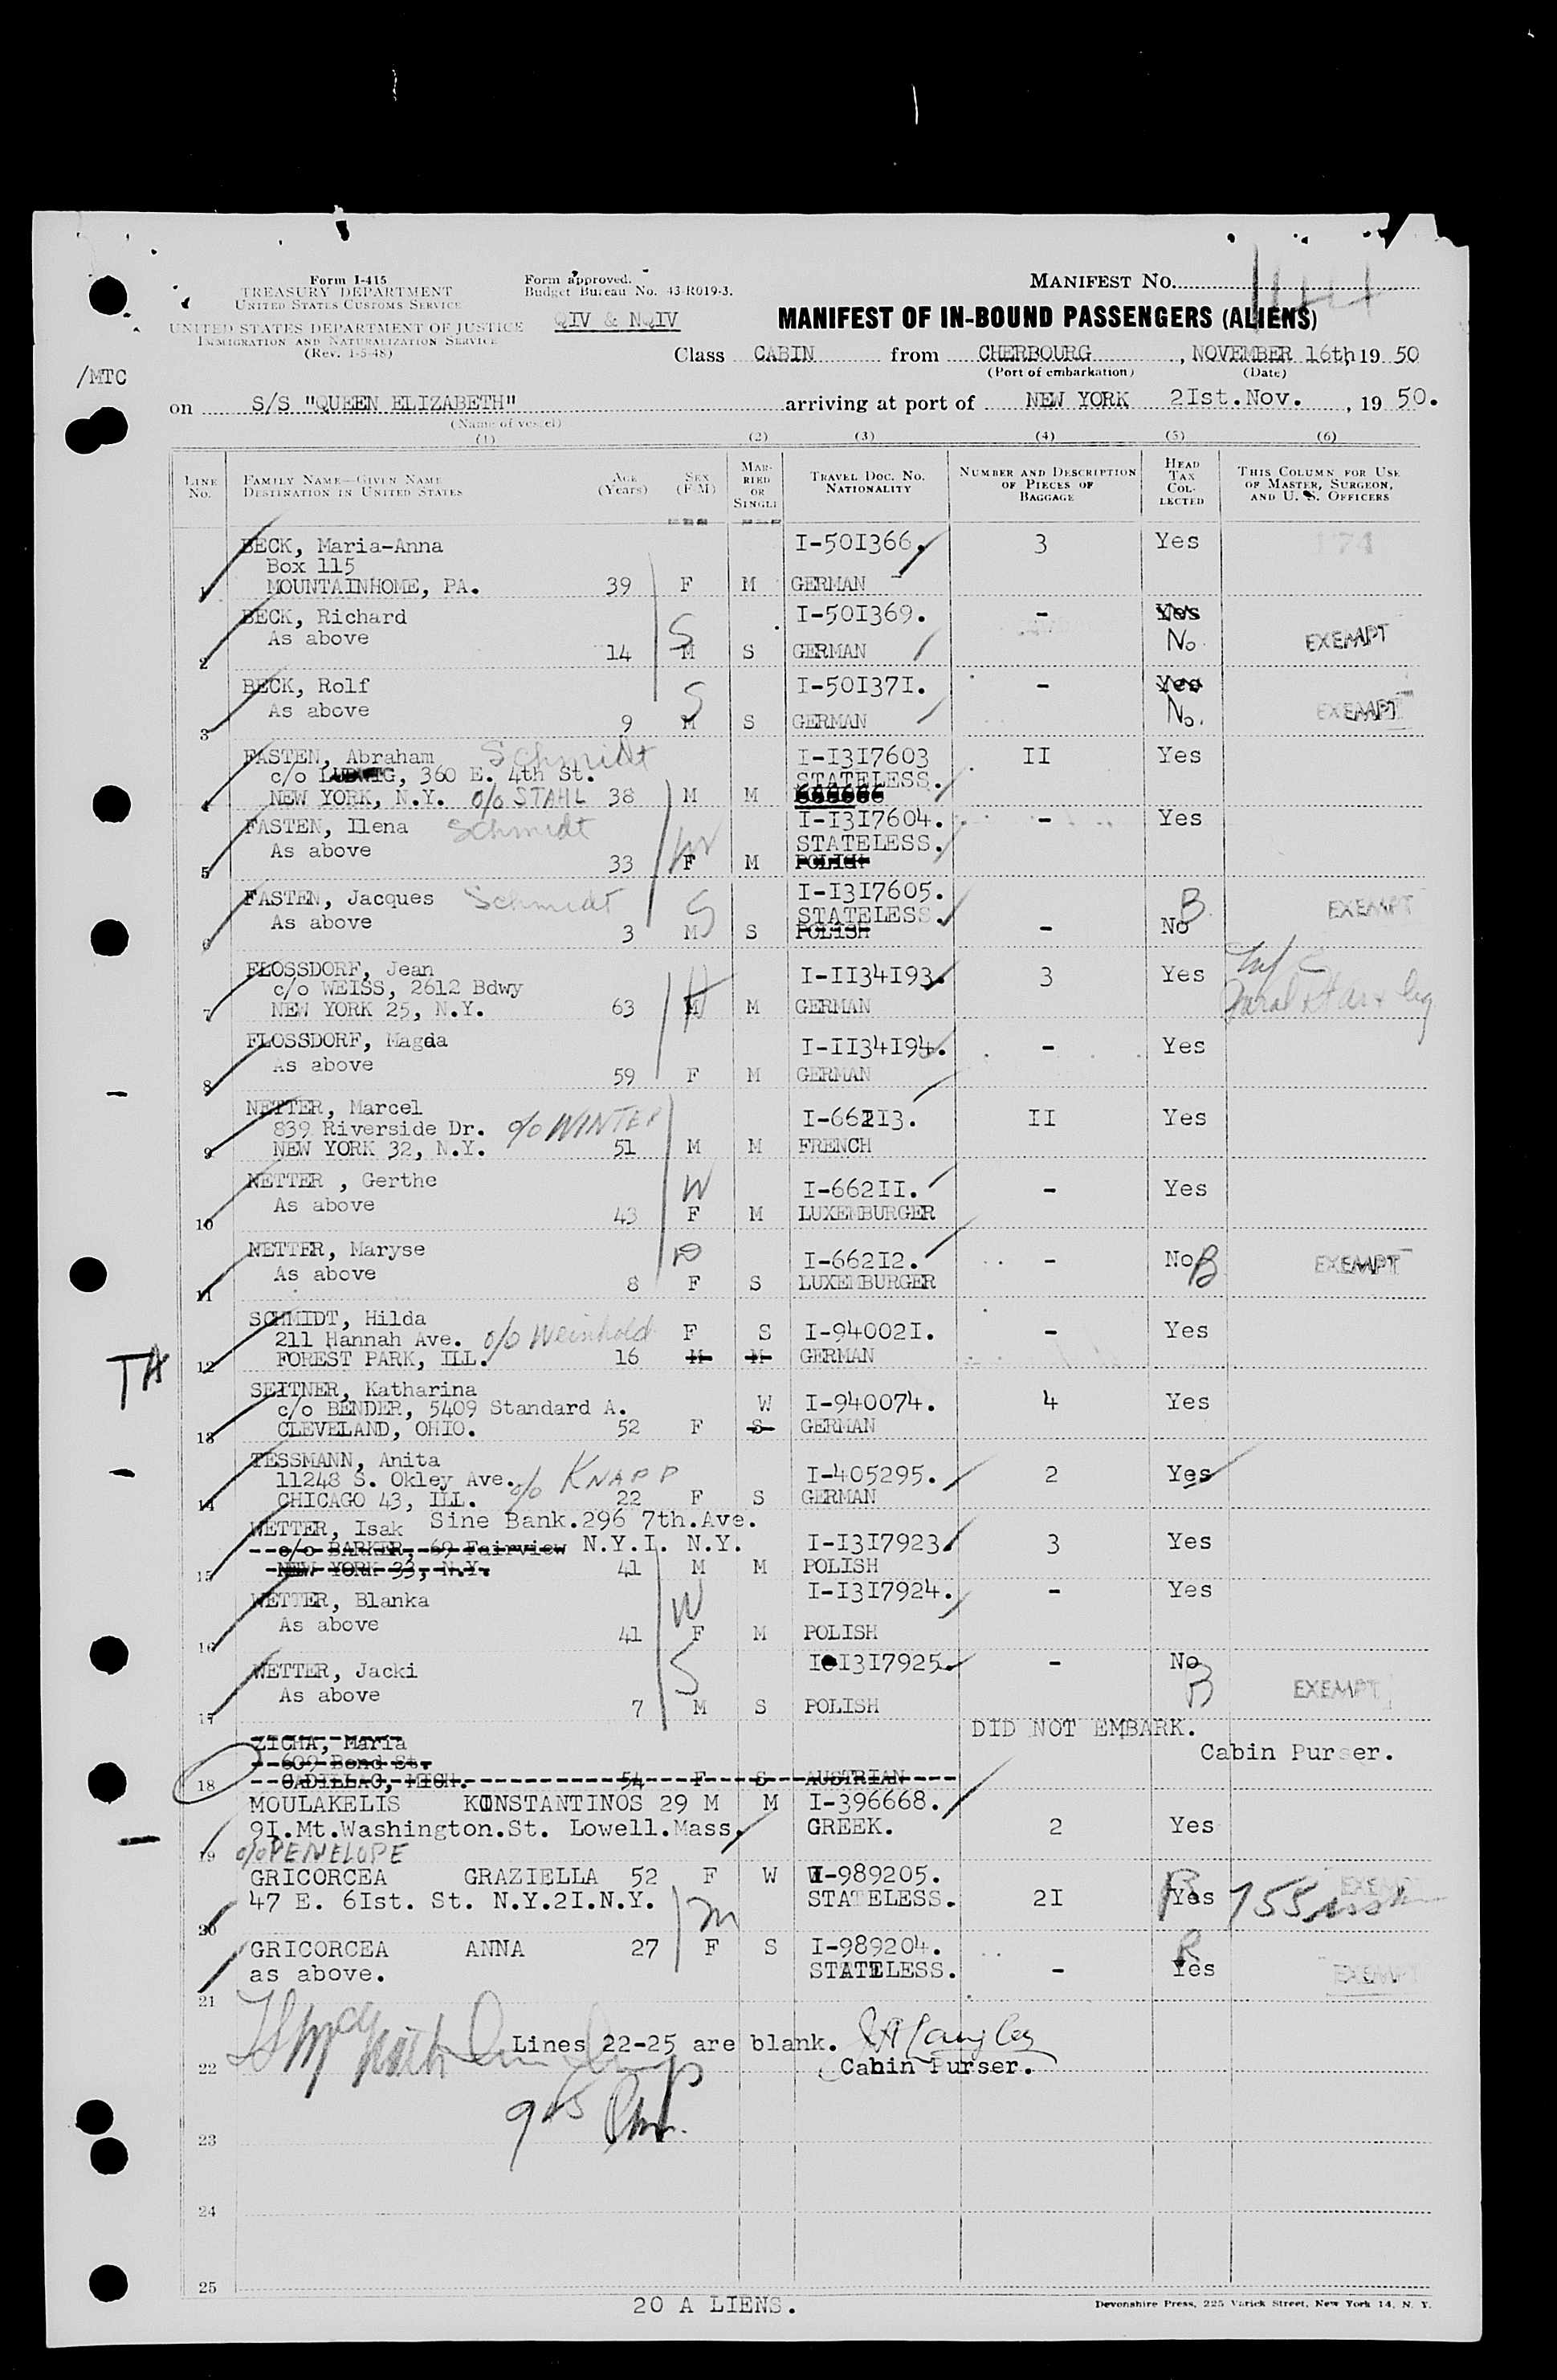 Form I-415
TREASURY DEPARTMENT
UNITED STATES CUSTOMS SERVICE
UNITED STATES DEPARTMENT OF JUSTICE
IMMIGRATION AND NATURALIZATION SERVICE
(Rev. 1-5-48)
Form approved.
Budget Bureau No. 43-R019-3.
QIV & NQIV
MANIFEST NO. 144
MANIFEST OF IN-BOUND PASSENGERS (ALIENS)
/MTC
Class CABIN from CHERBOURG, NOVEMBER 16th, 19 50
(Port of embarkation) (Date)
on S/S "QUEEN ELIZABETH" arriving at port of NEW YORK 2Ist.Nov., 19 50.
(Name of vessel)
(1) (2) (3) (4) (5) (6)
LINE NO. FAMILY NAME—GIVEN NAME DESTINATION IN UNITED STATES AGE (Years) SEX (F-M) MARRIED OR SINGLE TRAVEL DOC. NO. NATIONALITY NUMBER AND DESCRIPTION OF PIECES OF BAGGAGE HEAD TAX COLLECTED THIS COLUMN FOR USE OF MASTER, SURGEON, AND U. S. OFFICERS
BECK, Maria-Anna I-50I366. 3 Yes 174
Box 115
1 MOUNTAINHOME, PA. 39 F M GERMAN
BECK, Richard I-50I369. - Yes
As above S No. EXEMPT
2 14 M S GERMAN
BECK, Rolf I-50I37I. - Yes
As above S No. EXEMPT
3 9 M S GERMAN
FASTEN, Abraham Schmidt I-I3I7603 II Yes
c/o LUDWIG, 360 E. 4th St. STATELESS.
4 NEW YORK, N.Y. c/o STAHL 38 M M
FASTEN, Ilena Schmidt I-I3I7604. - Yes
As above W STATELESS.
5 33 F M POLISH
FASTEN, Jacques Schmidt I-I3I7605. B EXEMPT
As above S STATELESS.
6 3 M S POLISH - No
FLOSSDORF, Jean I-II34I93. 3 Yes
c/o WEISS, 2612 Bdwy H
7 NEW YORK 25, N.Y. 63 M M GERMAN
FLOSSDORF, Magda I-II34I94. - Yes
As above
8 59 F M GERMAN
NETTER, Marcel I-662I3. II Yes
839 Riverside Dr. c/o WINTER
9 NEW YORK 32, N.Y. 51 M M FRENCH
NETTER , Gerthe W I-662II. - Yes
As above
10 43 F M LUXEMBURGER
NETTER, Maryse D I-662I2. - No B EXEMPT
As above
11 8 F S LUXEMBURGER
SCHMIDT, Hilda F S I-94002I. - Yes
211 Hannah Ave. c/o Weinhold
12 FOREST PARK, ILL. 16 M M GERMAN
TA
SEITNER, Katharina W I-940074. 4 Yes
c/o BENDER, 5409 Standard A.
13 CLEVELAND, OHIO. 52 F S GERMAN
TESSMANN, Anita I-405295. 2 Yes
11248 S. Okley Ave. c/o KNAPP
14 CHICAGO 43, ILL. 22 F S GERMAN
WETTER, Isak Sine Bank.296 7th.Ave. I-I3I7923. 3 Yes
c/o BARKER, 69 Fairview N.Y.I. N.Y.
15 NEW YORK 33, N.Y. 41 M M POLISH
WETTER, Blanka W I-I3I7924. - Yes
As above
16 41 F M POLISH
WETTER, Jacki S I-I3I7925. - No B EXEMPT
As above
17 7 M S POLISH
ZICHA, Maria DID NOT EMBARK.
609 Bond St. Cabin Purser.
18 CADILLAC, MICH. 54 F S AUSTRIAN
MOULAKELIS KONSTANTINOS 29 M M I-396668.
9I.Mt.Washington.St. Lowell.Mass. GREEK. 2 Yes
19 c/o PENELOPE
GRICORCEA GRAZIELLA 52 F W I-989205.
47 E. 6Ist. St. N.Y.2I.N.Y. M STATELESS. 2I Yes
20
GRICORCEA ANNA 27 F S I-989204. R
as above. STATELESS. - Yes EXEMPT
21
Lines 22-25 are blank.
22 Cabin Purser.
23
24
25
20 A LIENS.
Devonshire Press, 225 Varick Street, New York 14, N. Y.